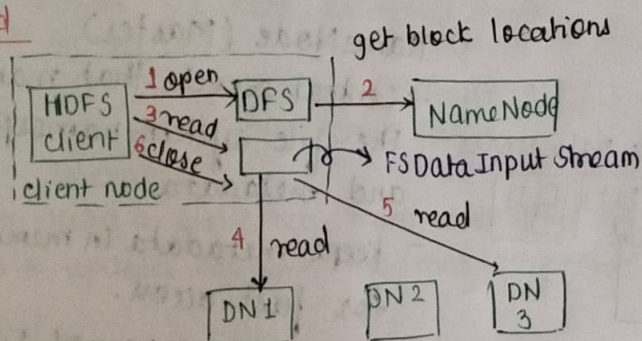 get block locations
1 open
2
HDFS client
DFS
NameNode
3 read
6 close
FSDataInput Stream
client node
5 read
4 read
DN 1
DN 2
DN 3